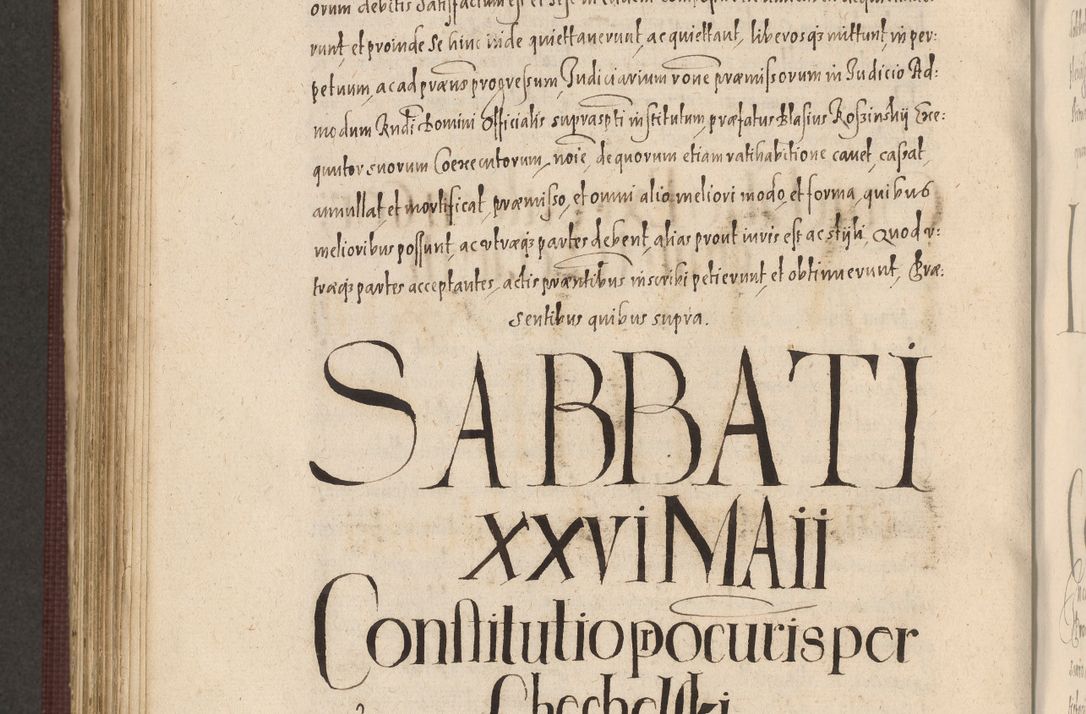 runt, et proinde se hinc inde quiettaverunt, ac quiettant, liberosq3 mittunt, in per:
petuum, ac ad præns progressum Judiciarium rõne præmissorum in Judicio Ad:
modum Rndi Domini Officialis suprasp̃ti institutum, præfatus Blasius Roszinskij Exe:
quutor suorum Coexecutorum, noĩe, de quorum etiam ratihabitione cavet, cassat,
annullat, et mortificat, præmisso, et omni alio meliori modo, et forma, quibus
melioribus possunt, ac utræq3 partes debent, alias prout iuris est ac styli, Quod v:
træq3 partes acceptantes, actis præntibus inscribi petierunt, et obtinuerunt, Præ:
sentibus quibus supra.
SABBATi
XXVi MAii
Constitutio procuris per
Chechelski